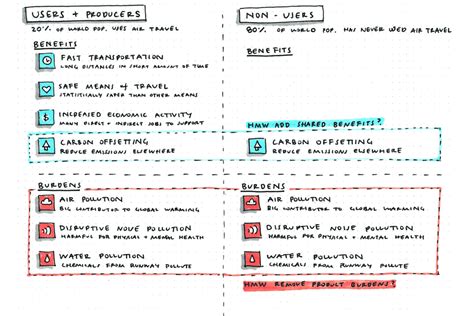 USERS + PRODUCERS
20% OF WORLD POP. USES AIR TRAVEL
BENEFITS
FAST TRANSPORTATION
LONG DISTANCES IN SHORT AMOUNT OF TIME
SAFE MEANS OF TRAVEL
STATISTICALLY SAFER THAN OTHER MEANS
INCREASED ECONOMIC ACTIVITY
MANY DIRECT + INDIRECT JOBS TO SUPPORT
CARBON OFFSETTING
REDUCE EMISSIONS ELSEWHERE
BURDENS
AIR POLLUTION
BIG CONTRIBUTOR TO GLOBAL WARMING
DISRUPTIVE NOISE POLLUTION
HARMFUL FOR PHYSICAL + MENTAL HEALTH
WATER POLLUTION
CHEMICALS FROM RUNWAY POLLUTE
NON-USERS
80% OF WORLD POP. HAS NEVER USED AIR TRAVEL
BENEFITS
HMW ADD SHARED BENEFITS?
CARBON OFFSETTING
REDUCE EMISSIONS ELSEWHERE
BURDENS
AIR POLLUTION
BIG CONTRIBUTOR TO GLOBAL WARMING
DISRUPTIVE NOISE POLLUTION
HARMFUL FOR PHYSICAL + MENTAL HEALTH
WATER POLLUTION
CHEMICALS FROM RUNWAY POLLUTE
HMW REMOVE PRODUCT BURDENS?